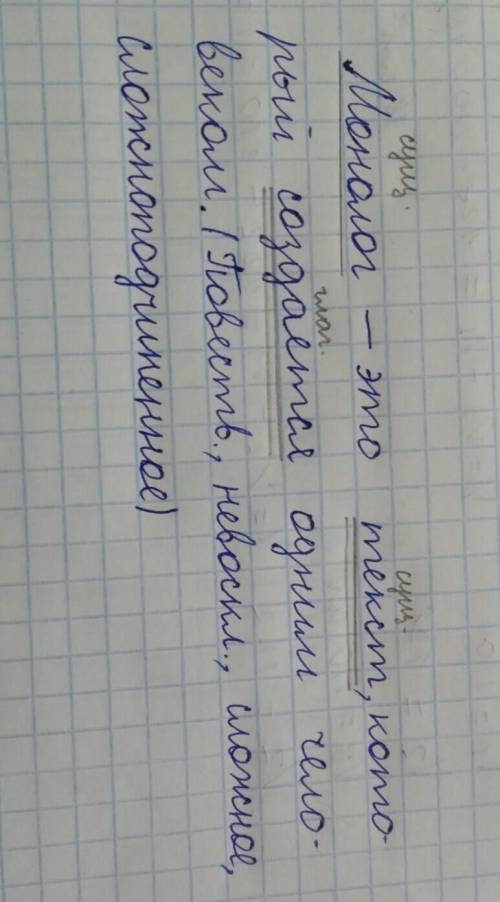 сущ. сущ.
Монолог — это текст, кото-
глаг.
рый создается одним чело-
веком. (Повеств., невоскл., сложное,
сложноподчиненное)